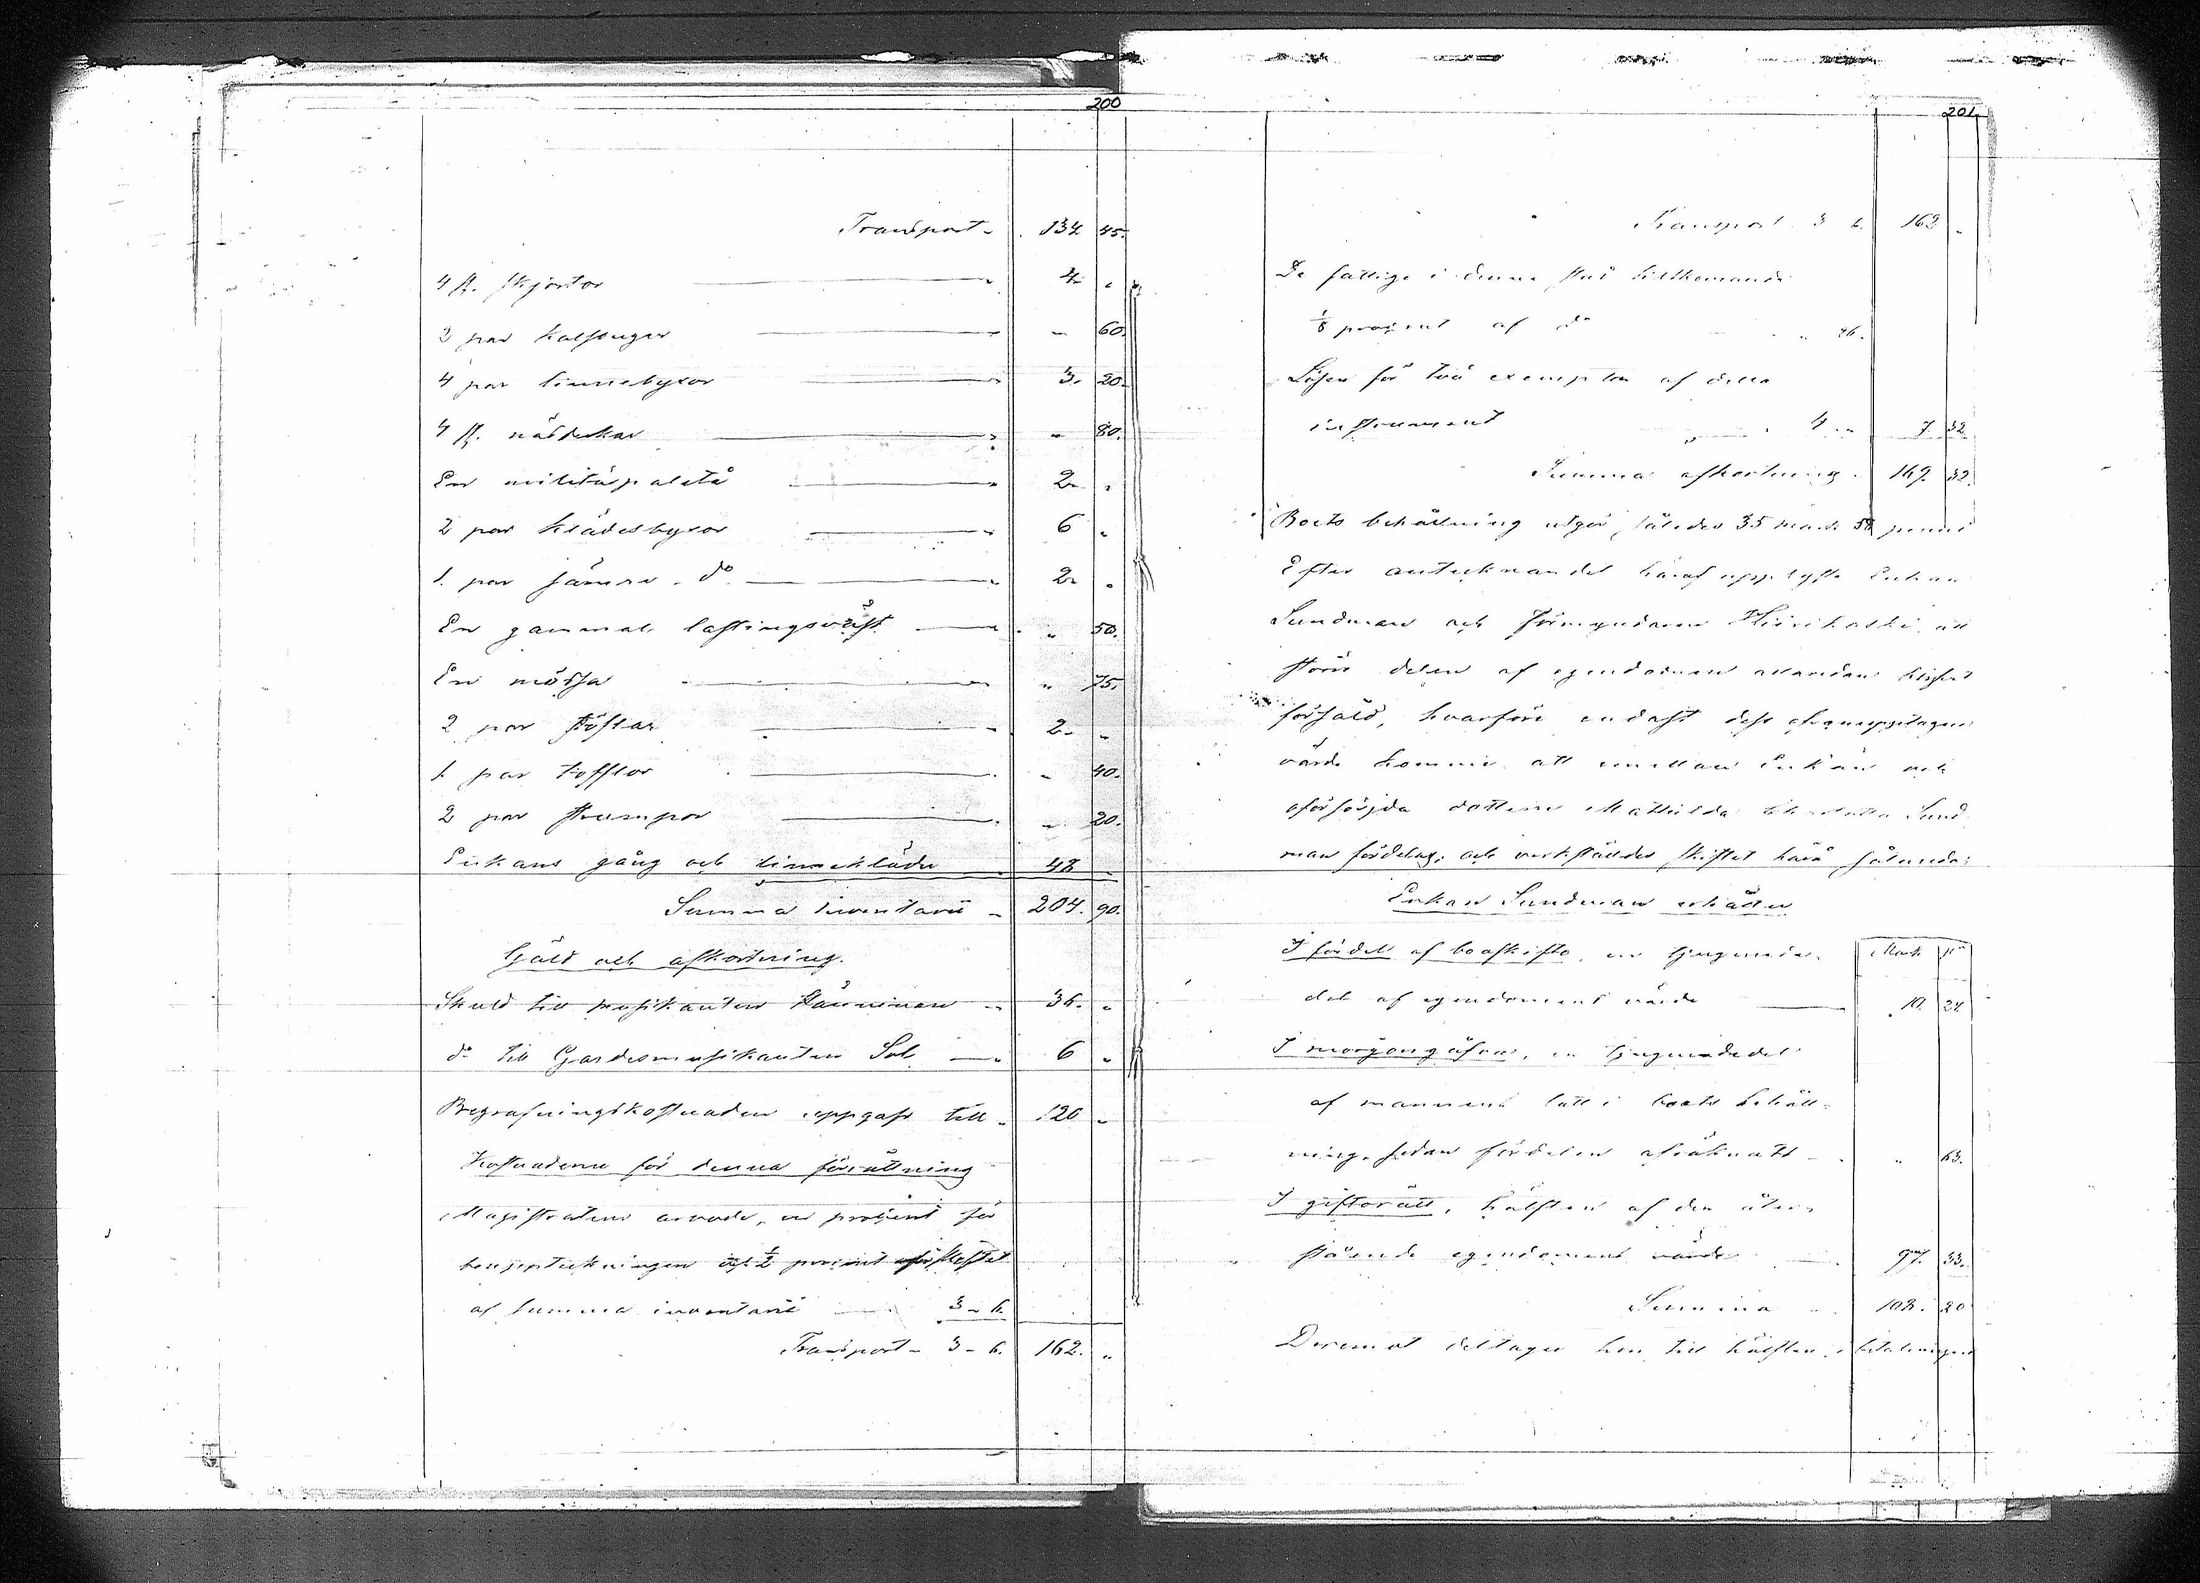 200
Transport - 134 45.
4 st. skjortor 4 "
2 par kalsonger " 60.
4 par linnebyxor 3. 20.
4 st. näsdukar " 80.
En militärpaletå 2 "
2 par klädesbyxor 6 "
1. par sämre do 2 "
En gammal lastingsväst " 50.
En mössa " 75.
2 par stöflar 2 "
1. par tofflor " 40.
2 par strumpor " 20.
Enkans gång och linnekläder 48
Summa inventarii 204. 90.
Gäld och afkortning.
Skuld till musikanten Hänninen 36. "
do till Gardesmusikanten Sal 6 "
Begrafningskostnaden uppgafs till 120 "
Kostnaderna för denna förrättning
Magistratens arvode, en procent för
bouppteckningen och 1/2 procent för skiftet
af summa inventarii 3 - 6.
Transport - 3 - 6. 162. "
201.
Transport 3 6. 162 "
De fattige i denne stad tillkommande
1/8 procent af do " 26.
Lösen för två exemplar af detta
instrument " 4 " 7. 32.
Summa afkortning 169. 32.
Boets behållning utgör således 35 mark 58 penni
Efter antecknandet häraf upplyste Enkan
Sundman och förmyndaren att
större delen af egendomen allaredan blifvit
försåld, hvarföre endast dess ofvanupptagne
värde kommer att emellan Enkan och
oförsörjda dottern Mathilda Sund-
man fördelas; och verkställdes skiftet härå sålunda:
Enkan Sundman erhåller
Mark pi
I fördel af boo oskifto, en tjugonde-
del af egendomens värde 10. 24.
I morgongåfva, en tjugondedel
af mannens lott i boets behåll-
ning, sedan fördelen afräknats " 63.
I giftorätt, hälften af den åter-
stående egendomens värde 97. 33.
Summa 108. 20
Deremot deltager hon till hälften i betalningen